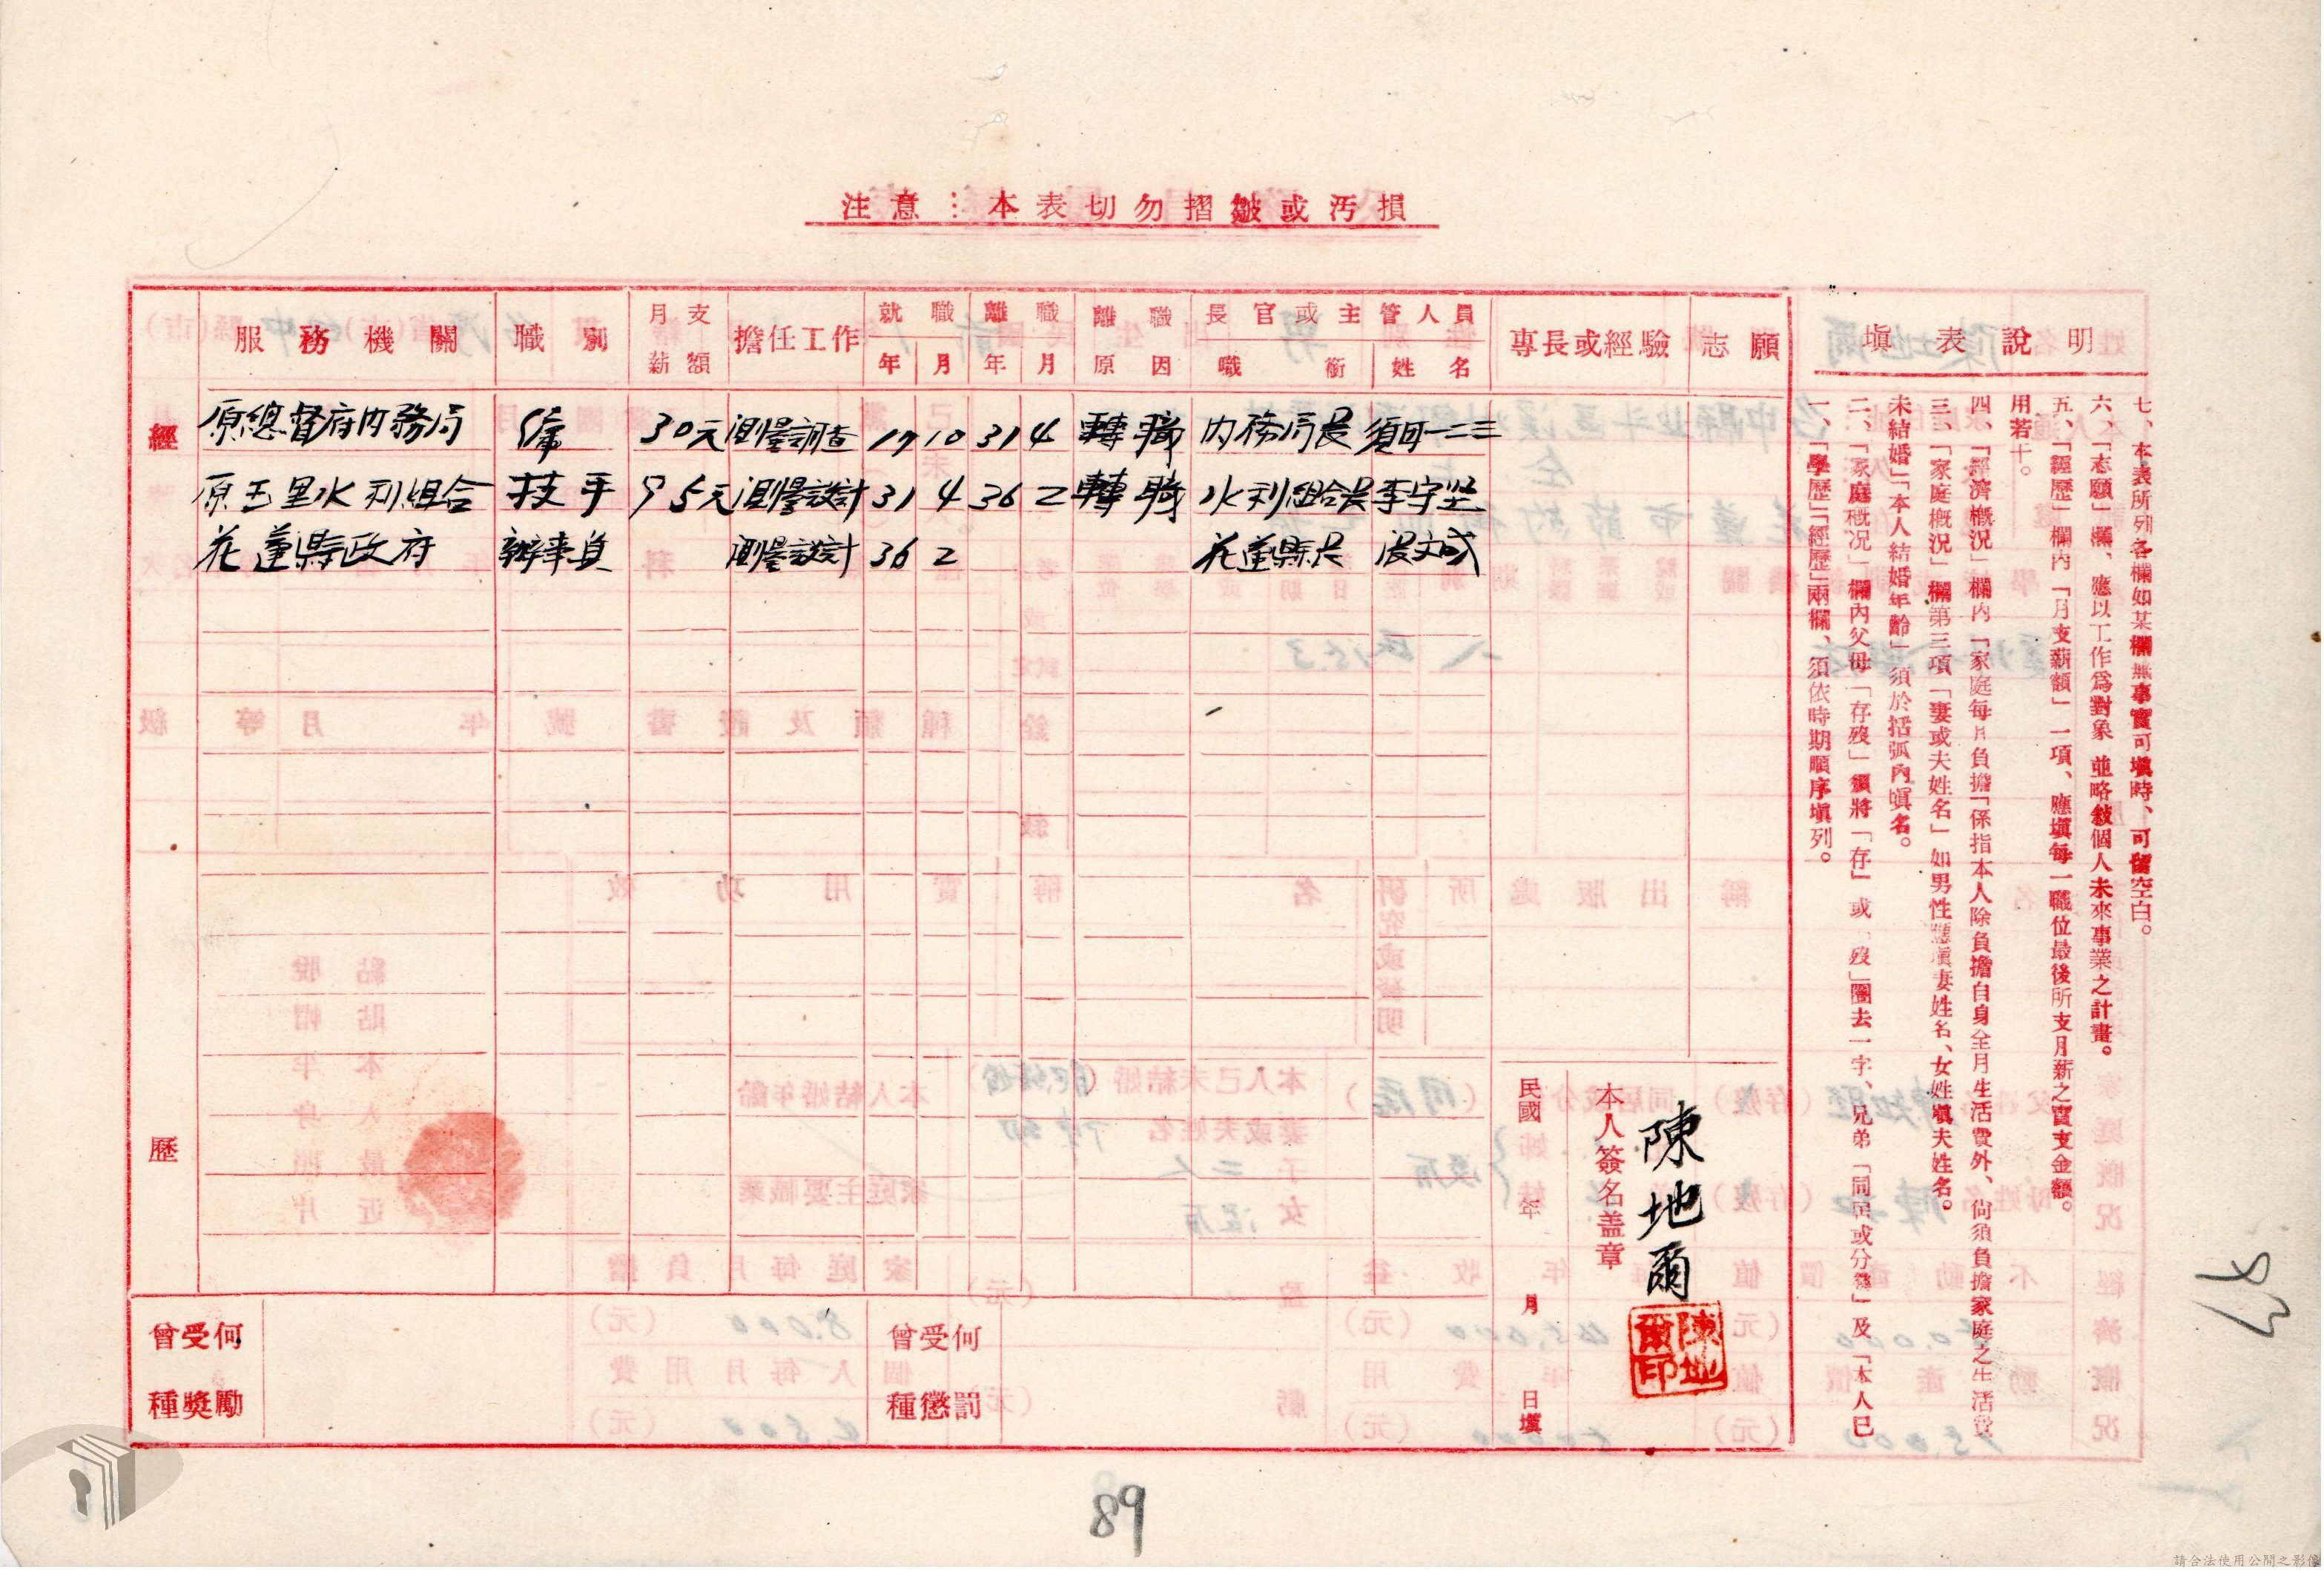 注意：本表切勿摺皺或汚損
經歷
服務機關 職別 月支薪額 擔任工作 就職 年 月 離職 年 月 離職原因 長官或主管人員 職銜 姓名 專長或經驗 志願
原總督府內務局 傭 30元 測量調查 17 10 31 4 轉職 內務局長 須田一二三
原玉里水利組合 技手 95元 測量設計 31 4 36 2 轉職 水利組合長
花蓮縣政府 辦事員 測量設計 36 2 花蓮縣長 張文成
曾受何種獎勵
曾受何種懲罰
民國 年 月 日塡
本人簽名盖章
陳地爾
陳地爾印
明說表塡
一、「學歷」「經歷」兩欄、須依時期順序塡列。
二、「家庭概況」欄內父母「存歿」須將「存」或「歿」圈去一字、兄弟「同居或分爨」及「本人已
未結婚」「本人結婚年齡」須於括弧內塡名。
三、「家庭概況」欄第三項「妻或夫姓名」如男性應塡妻姓名、女姓塡夫姓名。
四、「經濟概況」欄內「家庭每月負擔」係指本人除負擔自身全月生活費外、尙須負擔家庭之生活費
用若干。
五、「經歷」欄內「月支薪額」一項、應塡每一職位最後所支月薪之實支金額。
六、「志願」欄、應以工作爲對象 並略敍個人未來事業之計畫。
七、本表所列各欄如某欄無事實可塡時、可留空白。
89
請合法使用公開之影像